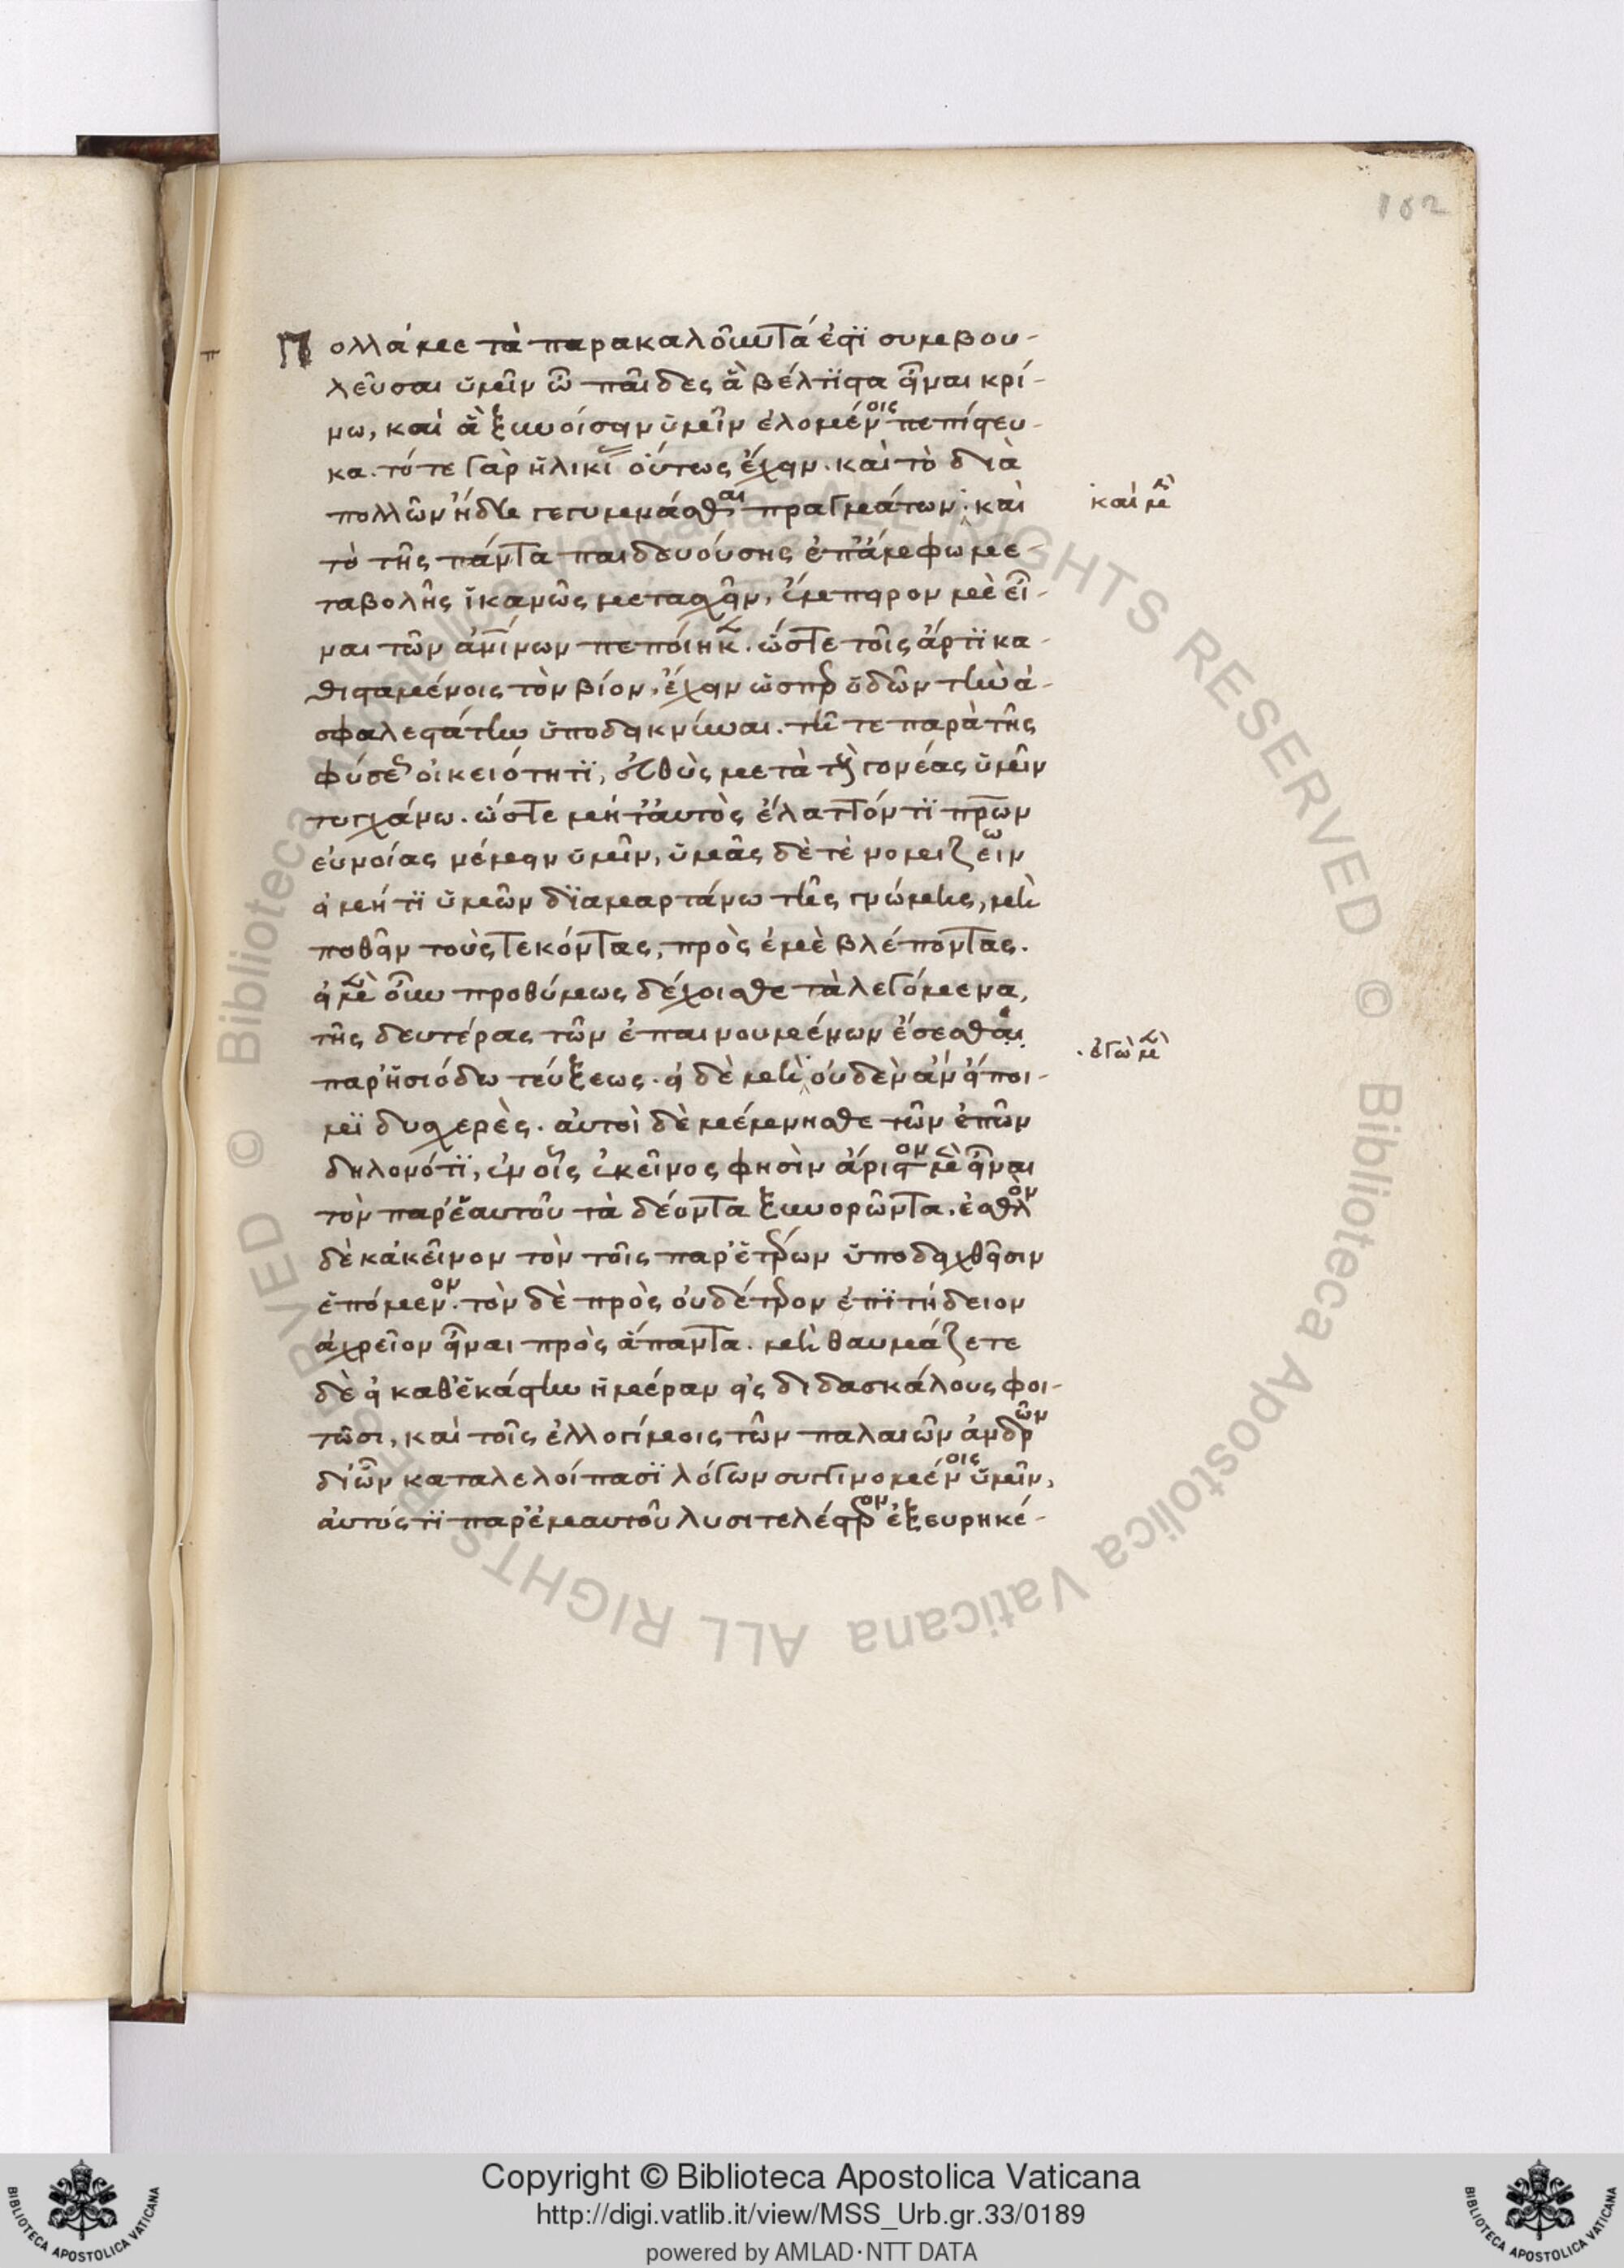 162
Πολλά με τὰ παρακαλοῦντά ἐστι συμβου-
λεῦσαι ὑμῖν ὦ παῖδες ἃ βέλτιστα εἶναι κρί-
νω, καὶ ἃ ξυνοίσειν ὑμῖν ἑλομένοις πεπίστευ-
κα. τό τε γὰρ ἡλικίας οὕτως ἔχειν. καὶ τὸ διὰ
πολλῶν ἤδη γεγυμνάσθαι πραγμάτων. καὶ
καὶ μὴν
τὸ τῆς πάντα παιδευούσης ἐπ' ἄμφω με-
ταβολῆς ἱκανῶς μετασχεῖν, ἔμπειρον μὲ εἶ-
ναι τῶν ἀνίνων πεποίηκεν. ὥστε τοῖς ἄρτι κα-
θισταμένοις τὸν βίον, ἔχειν ὥσπερ ὁδῶν τὴν ἀ-
σφαλεστάτην ὑποδεικνύναι. τῆ τε παρὰ τῆς
φύσεως οἰκειότητι, εὐθὺς μετὰ τοὺς γονέας ὑμῖν
τυγχάνω. ὥστε μήτ' αὐτὸς ἔλαττόν τι πρων
εὐνοίας νέμειν ὑμῖν, ὑμᾶς δὲ τὲ νομιζεῖν
εἰ μή τι ὑμῶν διαμαρτάνω τῆς γνώμης, μὴ
ποθεῖν τοὺς τεκόντας, πρὸς ἐμὲ βλέποντας.
εἰ μὲν οὖν προθύμως δέχοισθε τὰ λεγόμενα,
τῆς δευτέρας τῶν ἐπαινουμένων ἔσεσθαι
παρ' ἡσιόδω τεύξεως. εἰ δὲ μὴ οὐδὲν ἂν εἴποι-
ἐγὼ μὲν
μι δυσχερὲς. αὐτοὶ δὲ μέμνησθε τῶν ἐπῶν
δηλονότι, ἐν οἷς ἐκεῖνος φησὶν ἄριστον μὲν εἶναι
τὸν παρ' ἑαυτοῦ τὰ δέοντα ξυνορῶντα. ἐσθλὸν
δὲ κἀκεῖνον τὸν τοῖς παρ' ἑτέρων ὑποδειχθεῖσιν
ἑπόμενον. τὸν δὲ πρὸς οὐδέτερον ἐπιτήδειον
ἀχρεῖον εἶναι πρὸς ἅπαντα. μὴ θαυμάζετε
δὲ εἰ καθ' ἑκάστην ἡμέραν εἰς διδασκάλους φοι-
τῶσι, καὶ τοῖς ἐλλογίμοις τῶν παλαιῶν ἀνδρῶν
δι' ὧν καταλελοίπασι λόγων συγγινομένοις ὑμῖν,
αὐτός τι παρ' ἐμαυτοῦ λυσιτελέστερον ἐξευρηκέ-
Copyright © Biblioteca Apostolica Vaticana
http://digi.vatlib.it/view/MSS_Urb.gr.33/0189
powered by AMLAD·NTT DATA